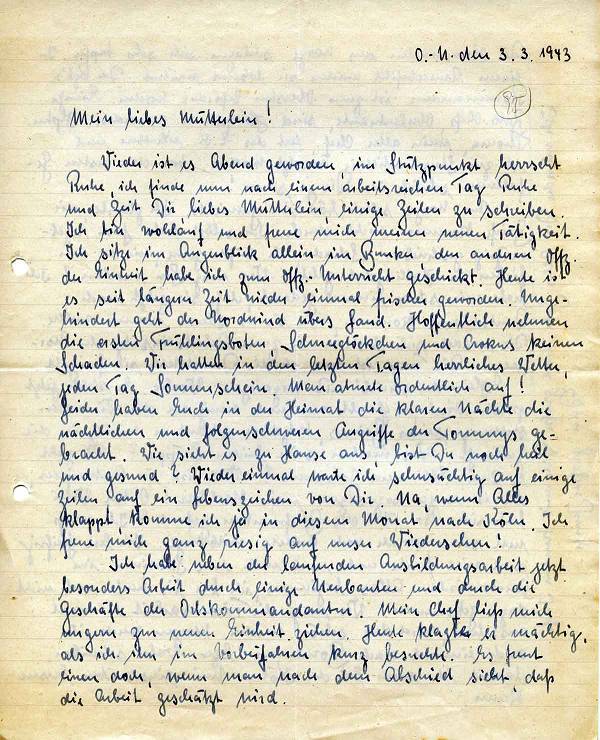 O.-U. den 3. 3. 1943
Mein liebes Mütterlein!
Wieder ist es Abend geworden, im Stützpunkt herrscht
Ruhe, ich finde nun nach einem arbeitsreichen Tag Ruhe
und Zeit Dir liebes Mütterlein, einige Zeilen zu schreiben.
Ich bin wohlauf und freue mich meiner neuen Tätigkeit.
Ich sitze im Augenblick allein im Bunker, den anderen Offz.
der Einheit habe ich zum Offz.-Unterricht geschickt. Heute ist
es seit langem Zeit wieder einmal frischer geworden. Unge-
hindert geht der Nordwind übers Land. Hoffentlich nehmen
die ersten Frühlingsboten, Schneeglöckchen und Crokus keinen
Schaden. Wir hatten in den letzten Tagen herrliches Wetter,
jeden Tag Sonnenschein. Man atmete ordentlich auf!
Leider haben Euch in der Heimat die klaren Nächte die
nächtlichen und folgenschweren Angriffe der Tommys ge-
bracht. Wie sieht es zu Hause aus, bist Du noch heil
und gesund? Wieder einmal warte ich sehnsüchtig auf einige
Zeilen auf ein Lebenszeichen von Dir. Na, wenn Alles
klappt komme ich ja in diesem Monat nach Köln. Ich
freue mich ganz riesig auf unser Wiedersehen!
Ich habe neben der laufenden Ausbildungsarbeit jetzt
besonders Arbeit durch einige Neubauten und durch die
Geschäfte der Ortskommandantur. Mein Chef ließ mich
ungern zur neuen Einheit ziehen. Heute klagte er mächtig,
als ich ihn im Vorbeifahren kurz besuchte. Es freut
einen doch, wenn man nach dem Abschied sieht, daß
die Arbeit geschätzt wird.